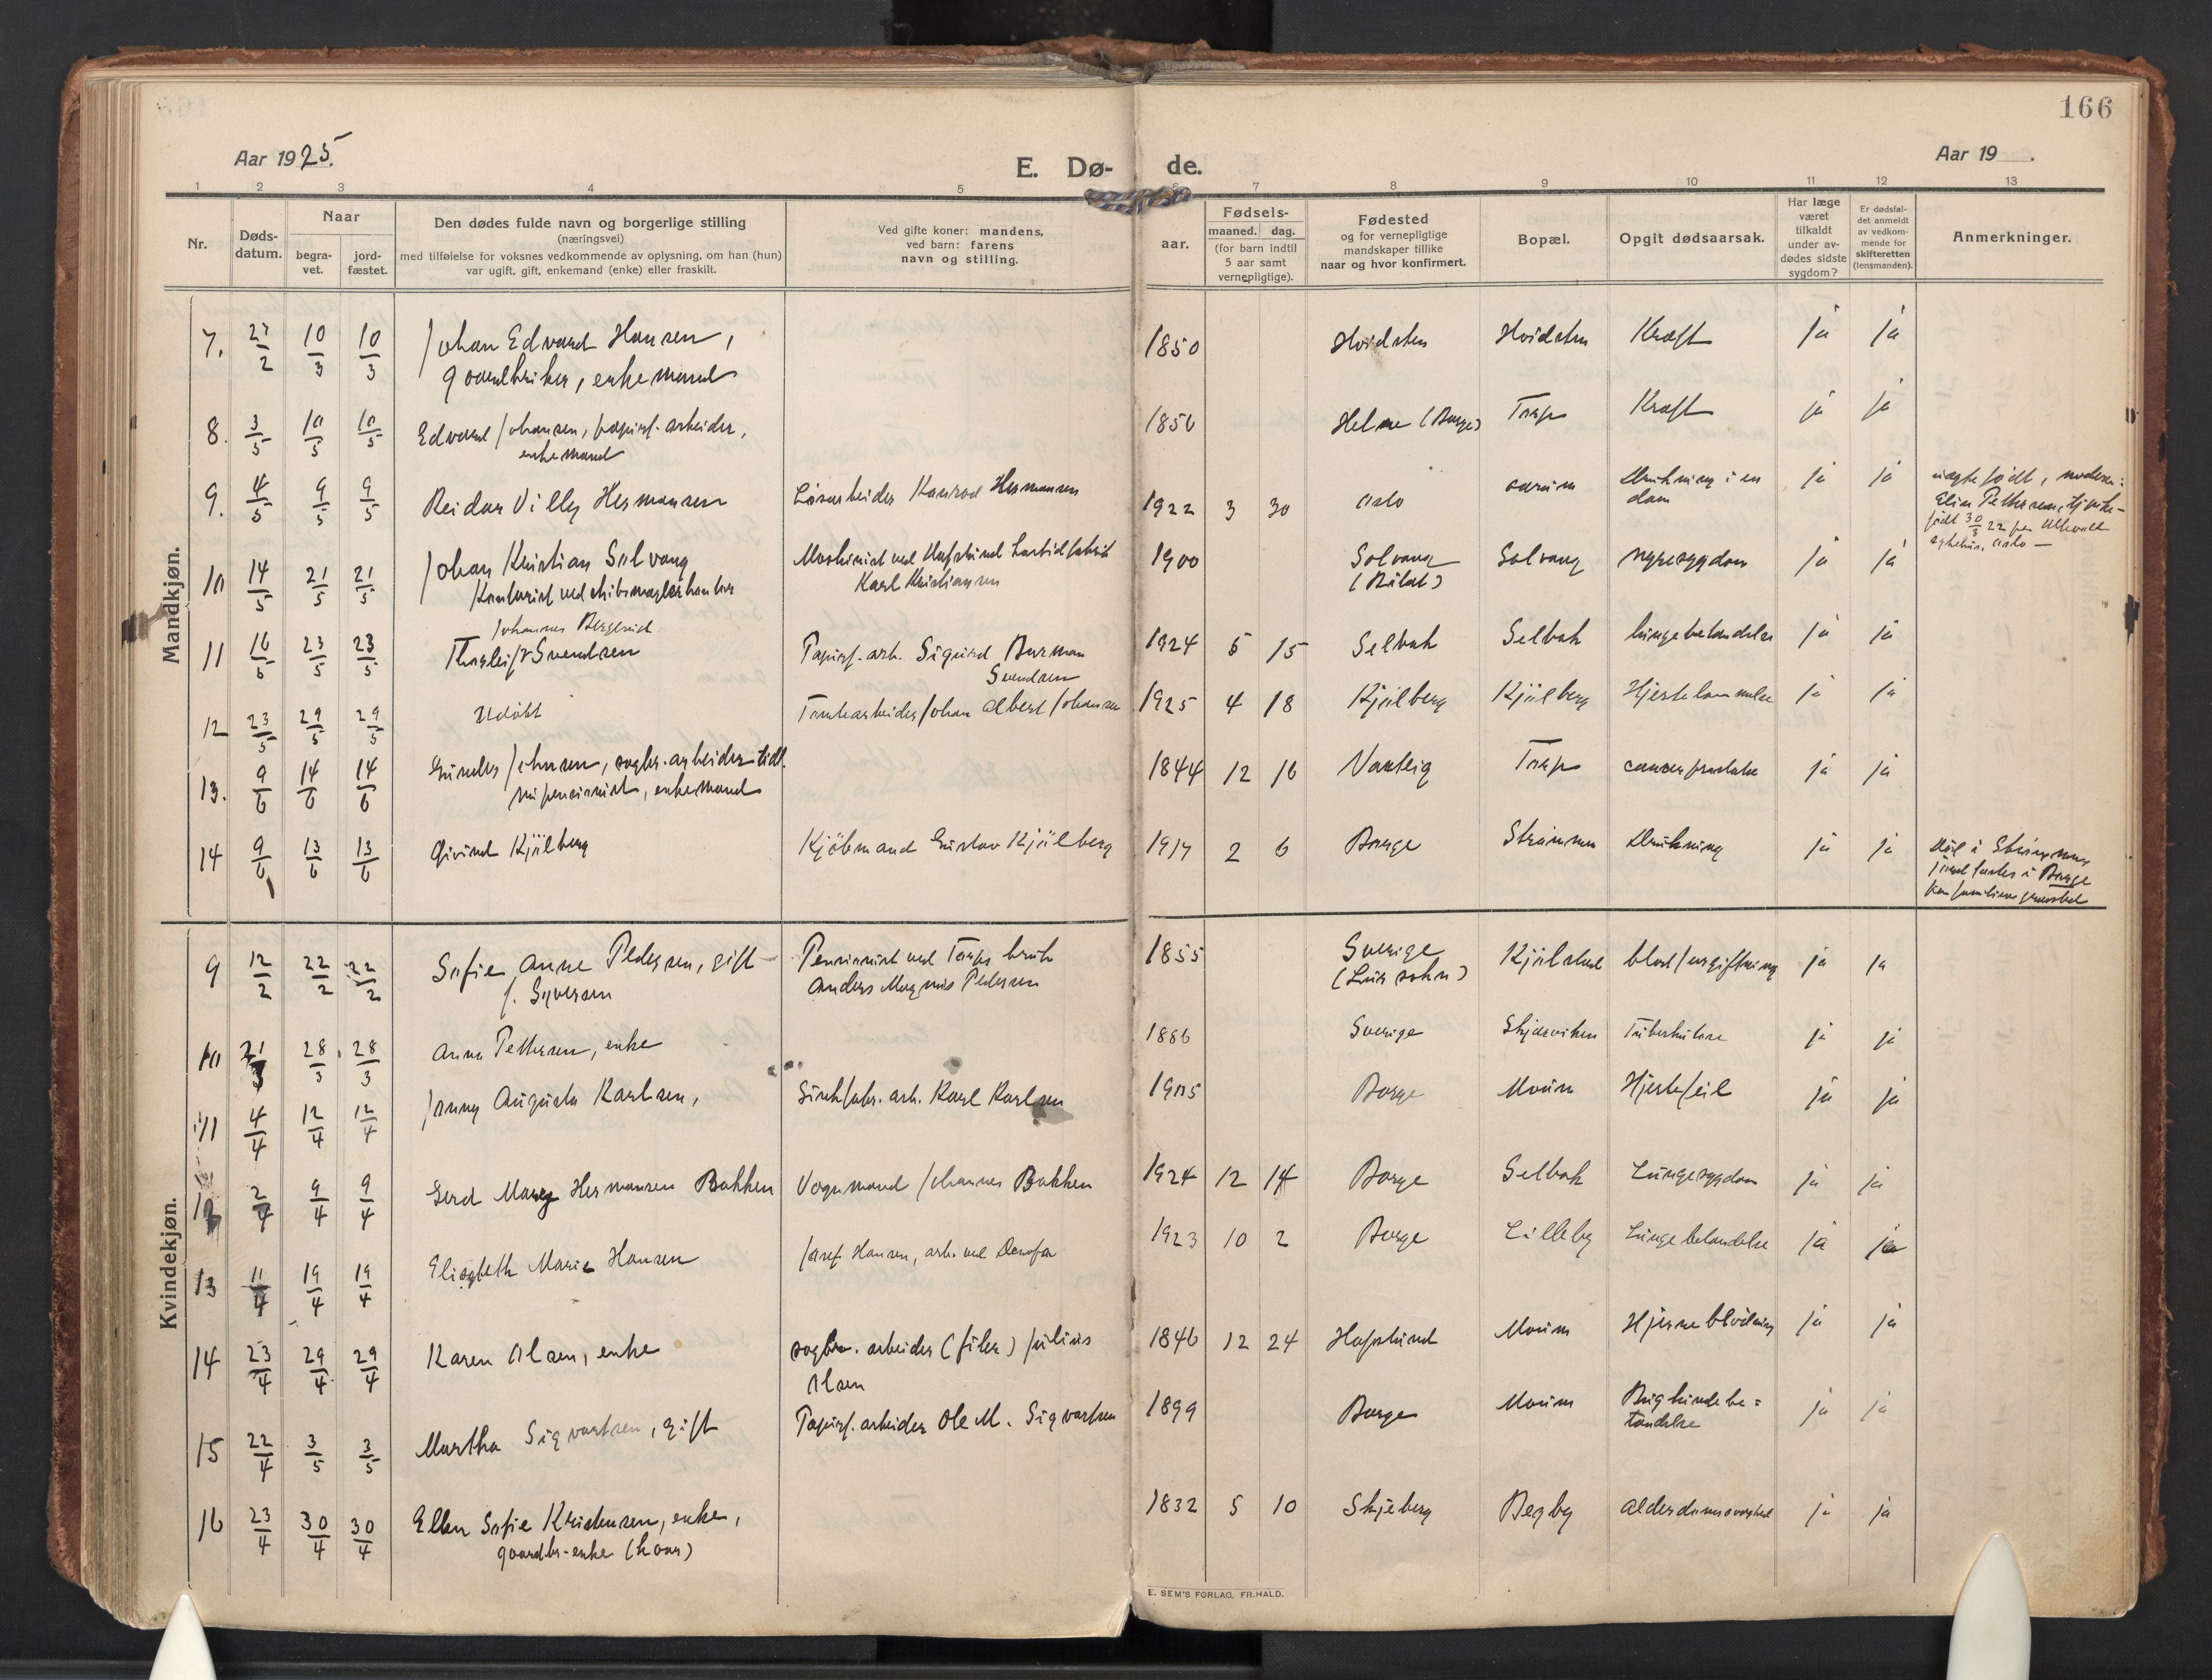 166
Aar 1925.
E. Dø- de.
Aar 19 .
1 2 3 4 5 7 8 9 10 11 12 13
Nr.
Døds-
datum.
Naar
begra-
vet.
jord-
fæstet.
Den dødes fulde navn og borgerlige stilling
(næringsvei)
med tilføielse for voksnes vedkommende av oplysning, om han (hun)
var ugift, gift, enkemand (enke) eller fraskilt.
Ved gifte koner: mandens,
ved barn: farens
navn og stilling.
aar.
Fødsels-
maaned. dag.
(for barn indtil
5 aar samt
vernepligtige).
Fødested
og for vernepligtige
mandskaper tillike
naar og hvor konfirmert.
Bopæl.
Opgit dødsaarsak.
Har læge
været
tilkaldt
under av-
dødes sidste
sygdom?
Er dødsfal-
det anmeldt
av vedkom-
mende for
skifteretten
(lensmanden).
Anmerkninger.
Mandkjøn.
7. 10/3 10/3 Johan Edvard Hansen, 1850 Hvidsten Hvidsten Kræft ja ja
gaardbruker, enkemand
8. 3/5 10/5 10/5 Edvard Johansen, papirf. arbeider, 1856 (Borge) Torp Kræft ja ja
enkemand
9. 4/5 9/5 9/5 Reidar Villy Hermansen Løsarbeider Konrod Hermansen 1922 3 30 Oslo Drukning i en ja ja
dam
uegte født, moderen:
født 30/3 22
10 14/5 21/5 21/5 Johan Kristian Solvang Maskinist ved Hafslund 1900 Solvang Solvang nyresygdom ja ja
Kontorist ved skibsmæglerkontor Karl Kristiansen
Johannes
11 16/5 23/5 23/5 Thorleif Svendsen Papirf. arb. Sigurd Burman 1924 5 15 Selbak Selbak lungebetændelse ja ja
Svendsen
12 23/5 29/5 29/5 Udøbt Tomtearbeider Johan Albert Johansen 1925 4 18 Kjølberg Kjølberg Hjertelammelse ja ja
13. 9/6 14/6 14/6 Gunder Johnsen, sagbr. arbeider tidl. 1844 12 16 Varteig Torp cancer prostatae ja ja
nu pensionist, enkemand
14 9/6 13/6 13/6 Eivind Kjølberg Kjøbmand Gustav Kjølberg 1917 2 6 Borge Strømmen Drukning ja ja
Død i Strømmen
jordfæstes i Borge
Kvindekjøn.
9 12/2 22/2 22/2 Sofie Anne Pedersen, gift Pensionist ved Torps bruk 1855 Sverige Kjølstad blodforgiftning ja ja
f. Syversen Anders Magnus Pedersen
10 21/3 28/3 28/3 Anna Pettersen, enke 1886 Sverige Skjærviken Tuberkulose ja ja
11 4/4 12/4 12/4 Jenny Augusta Karlsen, Sinkfabr. arb. Karl Karlsen 1905 Borge Moum Hjertefeil ja ja
12 2/4 9/4 9/4 Gerd Mary Hermansen Bakken Vognmand Johannes Bakken 1924 12 14 Borge Selbak Lungesygdom ja ja
13 11/4 19/4 19/4 Elisabeth Marie Hansen Josef Hansen, arb. ved Denofa 1923 10 2 Borge Lilleby Lungebetændelse ja ja
14 23/4 29/4 29/4 Karen Olsen, enke sagbr. arbeider (filer) Julius 1846 12 24 Hafslund Moum Hjerneblødning ja ja
Olsen
15 22/4 3/5 3/5 Martha Sigvartsen, gift Papirf. arbeider Ole M. Sigvartsen 1899 Borge Moum Bughindebe=
tændelse ja ja
16 23/4 30/4 30/4 Ellen Sofie Kristensen, enke, 1832 5 10 Skjeberg Begby alderdomssvaghed ja ja
gaardbr-enke (kaar)
E. SEM'S FORLAG, FR.HALD.